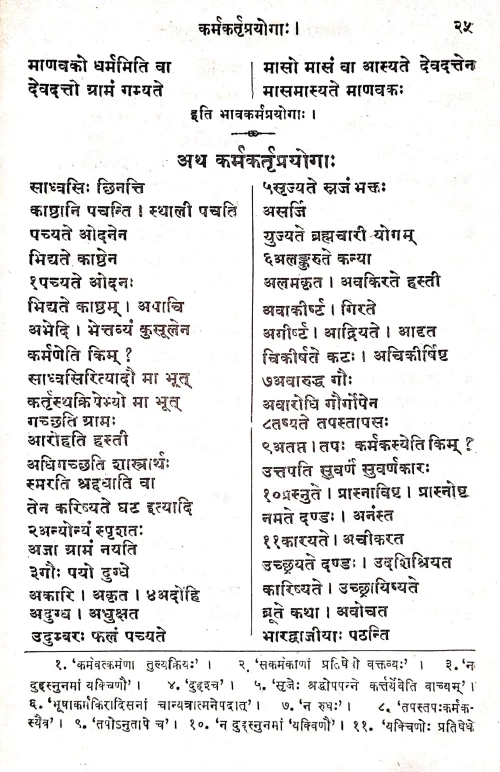 कर्मकर्तृप्रयोगाः ।
२५
माणवको धर्ममिति वा
देवदत्तो ग्रामं गम्यते
मासो मासं वा आस्यते देवदत्तेन
मासमास्यते माणवकः
इति भावकर्मप्रयोगाः ।
अथ कर्मकर्तृप्रयोगाः
साध्वसिः छिनत्ति
काष्ठानि पचन्ति । स्थाली पचति
पच्यते ओदनेन
भिद्यते काष्ठेन
१पच्यते ओदनः
भिद्यते काष्ठम् । अपाचि
अभेदि । भेत्तव्यं कुसूलेन
कर्मणेति किम् ?
साध्वसिरित्यादौ मा भूत्
कर्तृस्थक्रियेभ्यो मा भूत्
गच्छति ग्रामः
आरोहति हस्ती
अधिगच्छति शास्त्रार्थः
स्मरति श्रद्दधाति वा
तेन करिष्यते घट इत्यादि
२अन्योन्यं स्पृशतः
अजा ग्रामं नयति
३गौः पयो दुग्धे
अकारि । अकृत । ४अदोहि
अदुग्ध । अधुक्षत
उदुम्बरः फलं पच्यते
५सृज्यते स्रजं भक्तः
असर्जि
युज्यते ब्रह्मचारी योगम्
६अलङ्कुरुते कन्या
अलमकृत । अवकिरते हस्ती
अवाकीर्ष्ट । गिरते
अगीर्ष्ट । आद्रियते । आदृत
चिकीर्षते कटः । अचिकीर्षिष्ट
७अवारुद्ध गौः
अवारोधि गौर्गोपेन
८तप्यते तपस्तापसः
९अतप्त । तपः कर्मकस्येति किम् ?
उत्तपति सुवर्णं सुवर्णकारः
१०प्रस्नुते । प्रास्नाविष्ट । प्रास्नोष्ट
नमते दण्डः । अनंस्त
११कारयते । अचीकरत
उच्छ्रयते दण्डः । उदशिश्रियत
कारिष्यते । उच्छ्रायिष्यते
ब्रूते कथा । अवोचत
भारद्वाजीयाः पठन्ति
१. 'कर्मवत्कर्मणा तुल्यक्रियः' । २. 'सकर्मकाणां प्रतिषेधो वक्तव्यः' । ३. 'न
दुहस्नुनमां यक्चिणौ' । ४. 'दुहश्च' । ५. 'सृजेः श्रद्धोपपन्ने कर्त्तर्येवेति वाच्यम्' ।
६. 'भूषाकर्मकिरादिसनां चान्यत्रात्मनेपदात्' । ७. 'न रुधः' । ८. 'तपस्तपःकर्मक-
स्यैव' । ९. 'तपोऽनुतापे च' । १०. 'न दुहस्नुनमां यक्चिणौ' । ११. 'यक्चिणोः प्रतिषेधे